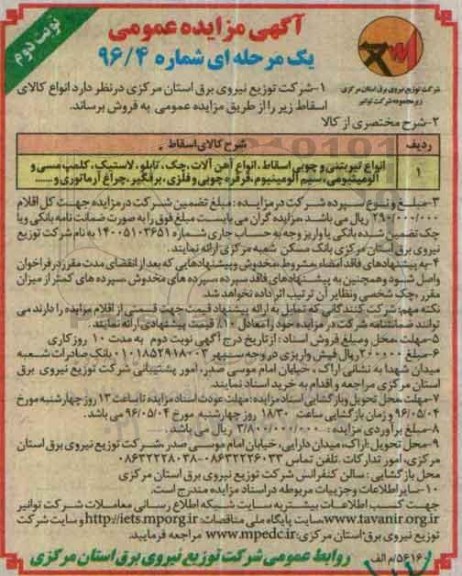 آگهی مزایده عمومی
یک مرحله ای شماره ۹۶/۴
نوبت دوم
شرکت توزیع نیروی برق استان مرکزی
زیر مجموعه شرکت توانیر
۱-شرکت توزیع نیروی برق استان مرکزی درنظر دارد انواع کالای
اسقاط زیر را از طریق مزایده عمومی به فروش برساند.
۲-شرح مختصری از کالا
ردیف شرح کالای اسقاط
۱ انواع تیربتنی و چوبی اسقاط، انواع آهن آلات، جک، تابلو، لاستیک، کلمپ مسی و
آلومینیومی، سیم آلومینیوم، قرقره چوبی و فلزی، برقگیر، چراغ آرماتوری و ....
۳-مبلغ و نوع سپرده شرکت در مزایده: مبلغ تضمین شرکت در مزایده جهت کل اقلام
۲۹۰/۰۰۰/۰۰۰ ریال می باشد، مزایده گران می بایست مبلغ فوق را به صورت ضمانت نامه بانکی و یا
چک تضمین شده بانکی یا واریز وجه به حساب جاری شماره ۱۴۰۰۵۱۰۳۶۵۱ به نام شرکت توزیع
نیروی برق استان مرکزی بانک مسکن شعبه مرکزی ارائه نمایند.
۴-به پیشنهادهای فاقد امضاء، مشروط، مخدوش و پیشنهادهایی که بعد از انقضای مدت مقرر در فراخوان
واصل شود و همچنین به پیشنهادهای فاقد سپرده، سپرده های مخدوش، سپرده های کمتر از میزان
مقرر، چک شخصی و نظایر آن ترتیب اثر داده نخواهد شد.
نکته مهم: شرکت کنندگانی که تمایل به ارائه پیشنهاد قیمت جهت قسمتی از اقلام مزایده را دارند می
توانند ضمانتنامه شرکت در مزایده خود را معادل ۱۰٪ قیمت پیشنهادی ارائه نمایند.
۵-مهلت، محل و مبلغ فروش اسناد: از تاریخ درج آگهی نوبت دوم به مدت ۱۰ روز کاری
۶-مبلغ ۲۰۰۰۰۰ ریال فیش واریزی در وجه سپهر ۰۱۰۱۸۵۲۹۱۸۰۰۳ بانک صادرات شعبه
میدان شهدا به نشانی اراک، خیابان امام موسی صدر، امور پشتیبانی شرکت توزیع نیروی برق
استان مرکزی مراجعه و اقدام به خرید اسناد نمایند.
۷-مهلت، محل تحویل و بازگشایی اسناد مزایده: مهلت عودت اسناد مزایده تا ساعت ۱۳ روز چهارشنبه مورخ
۹۶/۰۵/۰۴ و زمان بازگشایی ساعت ۱۸/۳۰ روز چهارشنبه مورخ ۹۶/۰۵/۰۴ می باشد.
۸-مبلغ برآوردی مزایده: ۳/۸۰۰/۰۰۰/۰۰۰ ریال می باشد.
۹-محل تحویل: اراک، میدان دارایی، خیابان امام موسی صدر، شرکت توزیع نیروی برق استان
مرکزی، امور تدارکات. تلفن تماس ۰۸۶۳۲۲۲۶۰۳۲-۰۸۶۳۲۲۲۸۰۳۸
محل بازگشایی: سالن کنفرانس شرکت توزیع نیروی برق استان مرکزی
۱۰-سایر اطلاعات و جزییات مربوطه در اسناد مزایده مندرج است.
جهت کسب اطلاعات بیشتر به سایت شبکه اطلاع رسانی معاملات شرکت توانیر
www.tavanir.org.ir سایت پایگاه ملی مناقصات: http://iets.mporg.ir و سایت شرکت
توزیع نیروی برق استان مرکزی: www.mpedc.ir مراجعه فرمایید.
روابط عمومی شرکت توزیع نیروی برق استان مرکزی
۵۶۱۶۰/م الف